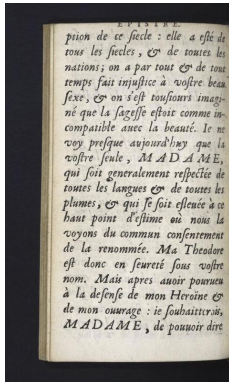 EPISTRE
ption de ce siecle : elle a esté de
tous les siecles , & de toutes les
nations ; on a par tout & de tout
temps fait injustice à vostre beau
sexe , & on s'est tousiours imagi-
né que la sagesse estoit comme in-
compatible auec la beauté. Ie ne
voy presque aujourd'huy que la
vostre seule , MADAME,
qui soit generalement respectée de
toutes les langues & de toutes les
plumes, & qui se soit esleuée à ce
haut point d'estime où nous la
voyons du commun consentement
de la renommée. Ma Theodore
est donc en seureté sous vostre
nom. Mais apres auoir pourueu
à la defense de mon Heroine &
de mon ouurage : ie souhaitterois,
MADAME , de pouuoir dire